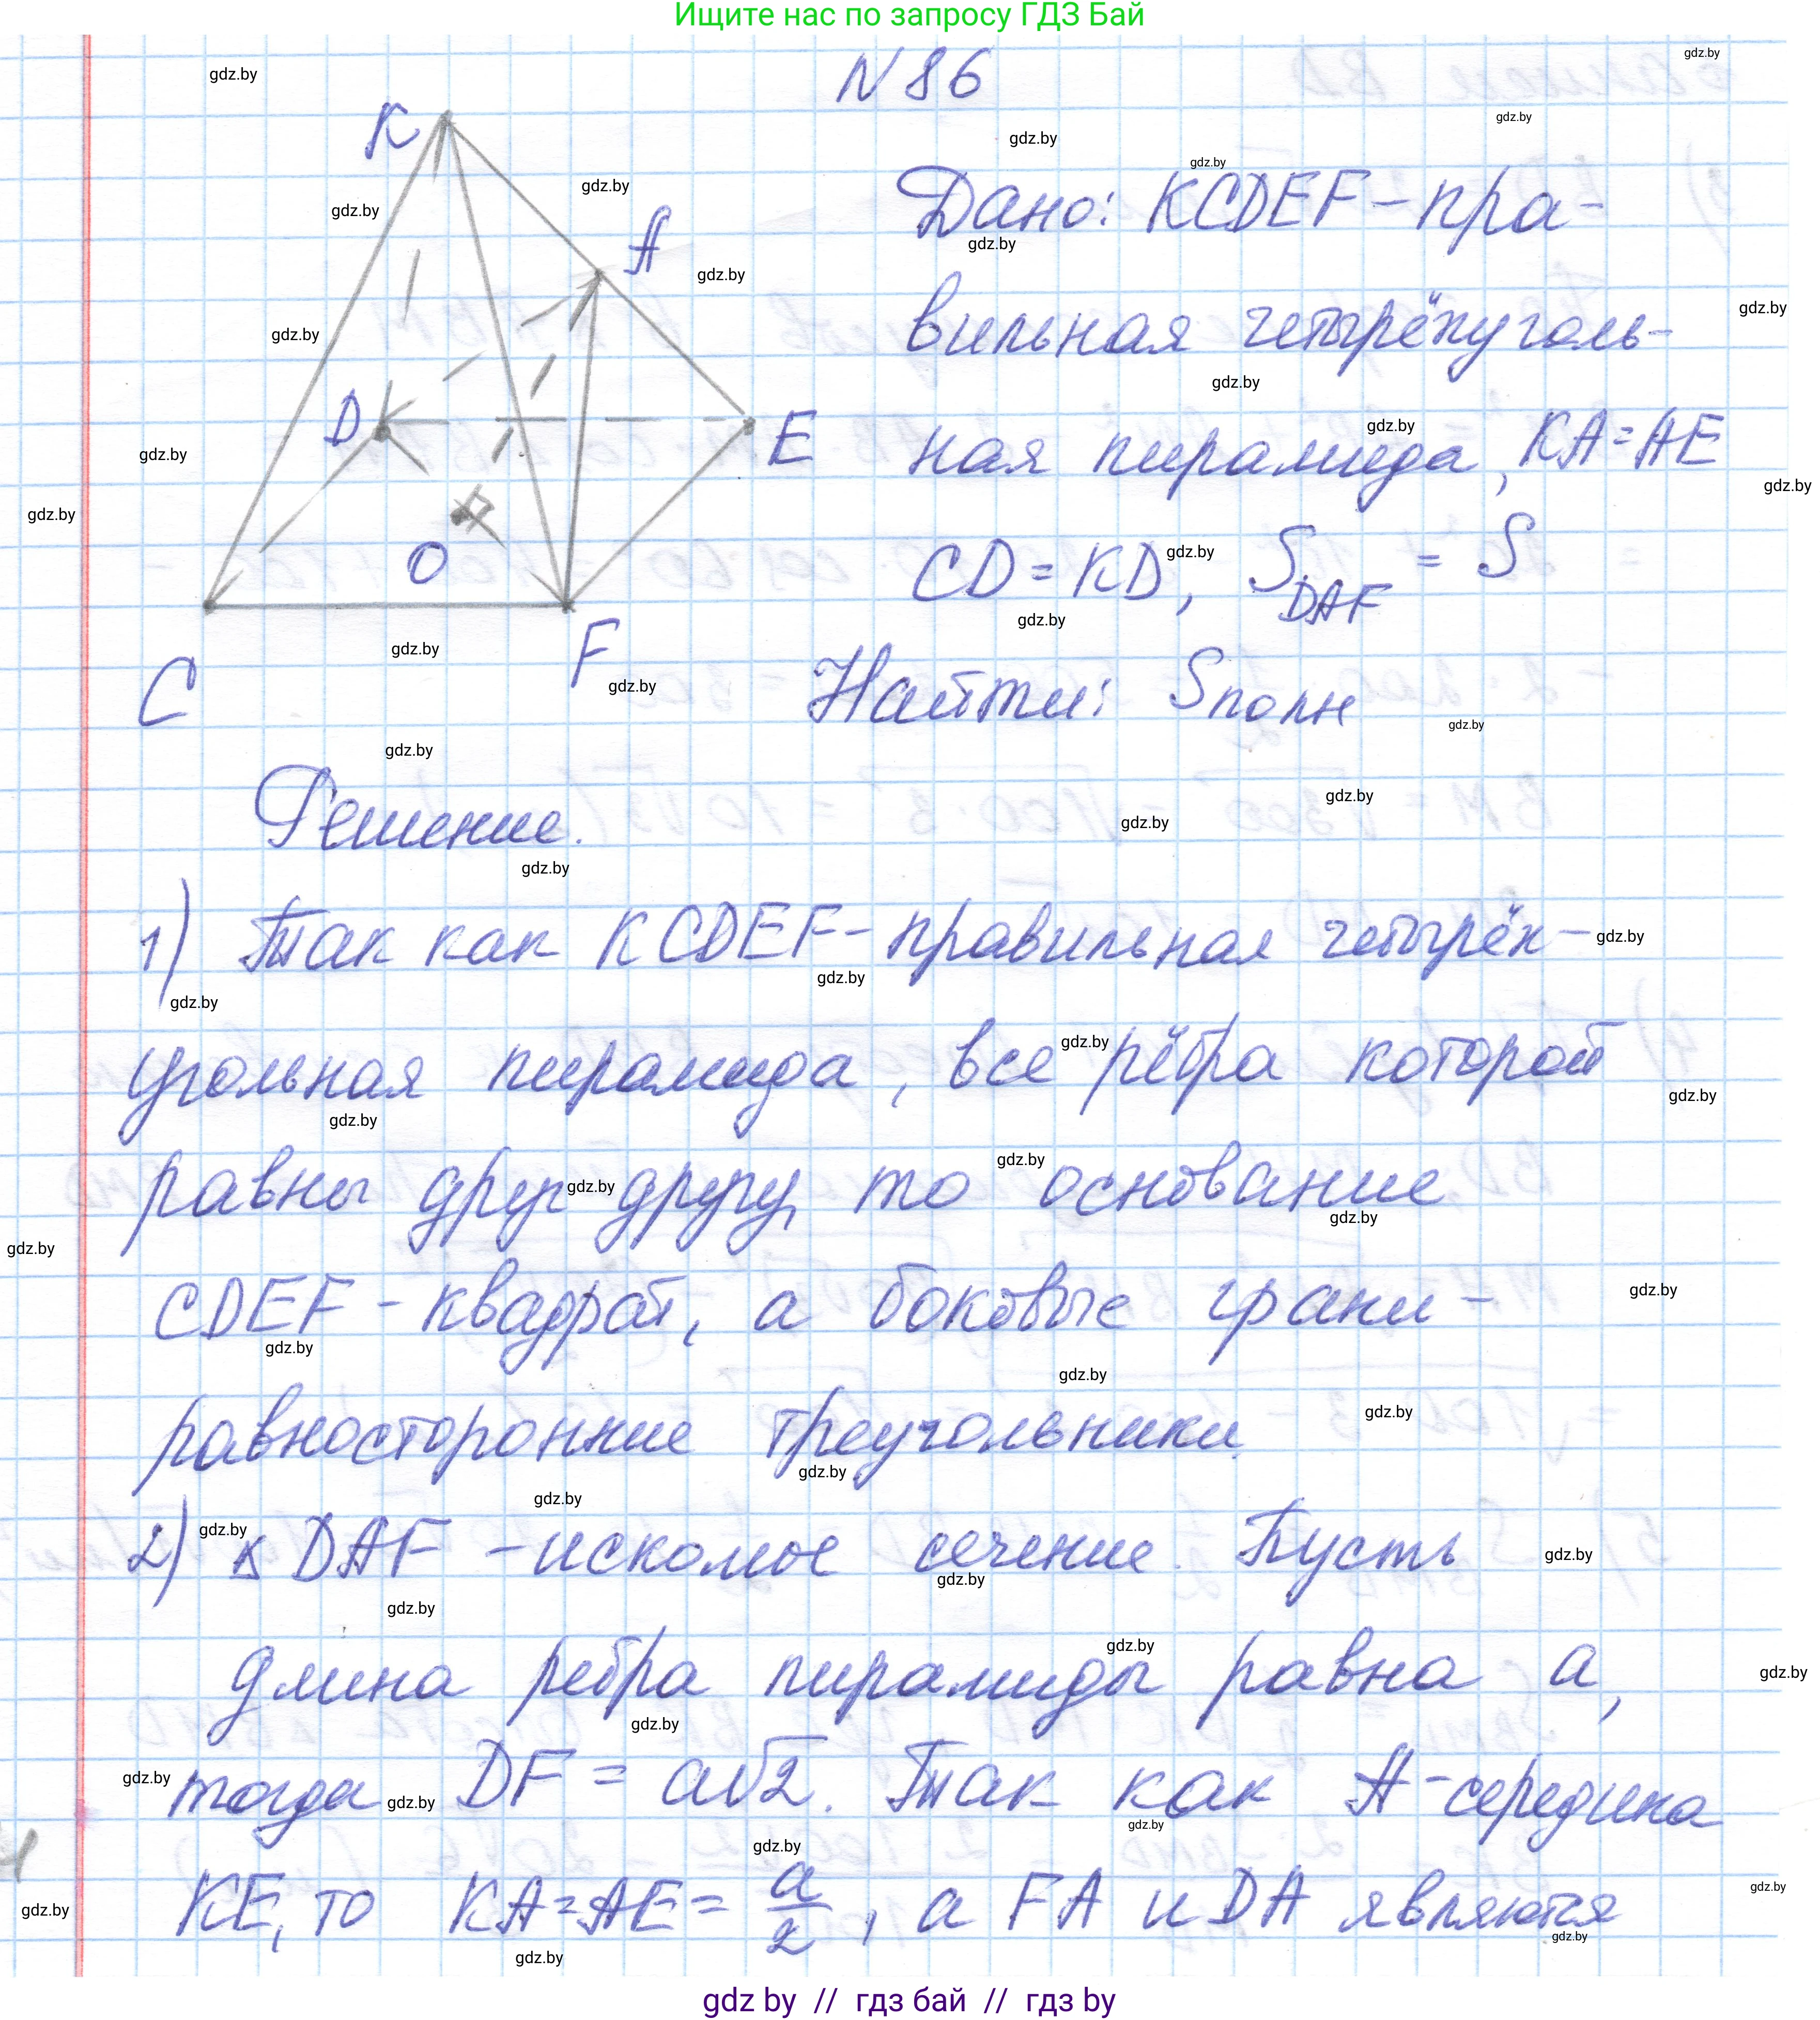 Ищите нас по запросу ГДЗ Бай
N 86
K
A
D
E
O
C
F
Дано: KCDEF – пра-
вильная четырёхуголь-
ная пирамида, KA = AE
CD = KD, S DAF = S
Найти: Sполн
Решение.
1) Так как KCDEF – правильная четырёх-
угольная пирамида, все рёбра которой
равны друг другу, то основание
CDEF – квадрат, а боковые грани –
равносторонние треугольники.
2) △ DAF – искомое сечение. Пусть
длина ребра пирамиды равна a,
тогда DF = a√2. Так как A – середина
KE, то KA = AE = a/2, а FA и DA являются
gdz by // гдз бай // гдз by